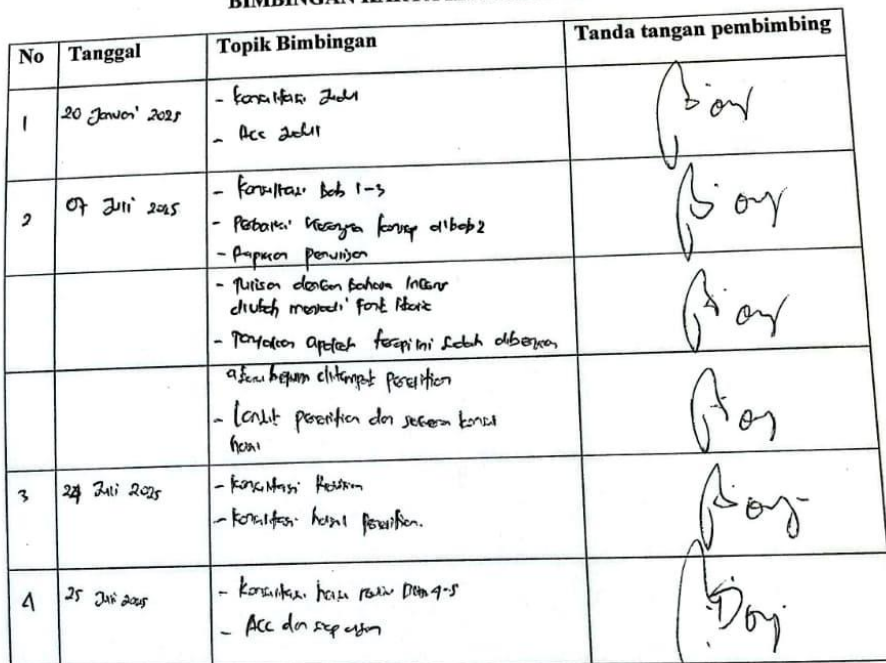 BIMBINGAN
No Tanggal Topik Bimbingan Tanda tangan pembimbing
1 20 Januari 2025 - Konsultasi Judul
- Acc Judul
2 07 Juli 2025 - Konsultasi Bab 1-3
- Perbaiki konsep dibab2
- Rapikan Penulisan
- Tulisan dengan bahasa Inggris
diubah menjadi font Italic
- Tanyakan apakah terapi ini sudah diberikan
atau belum ditempat penelitian
- Lanjut penelitian dan segera konsul
hasil
3 24 Juli 2025 - Konsultasi Revisian
- Konsultasi hasil penelitian.
4 25 Juli 2025 - Konsultasi hasil revisi 4-5
- Acc dan